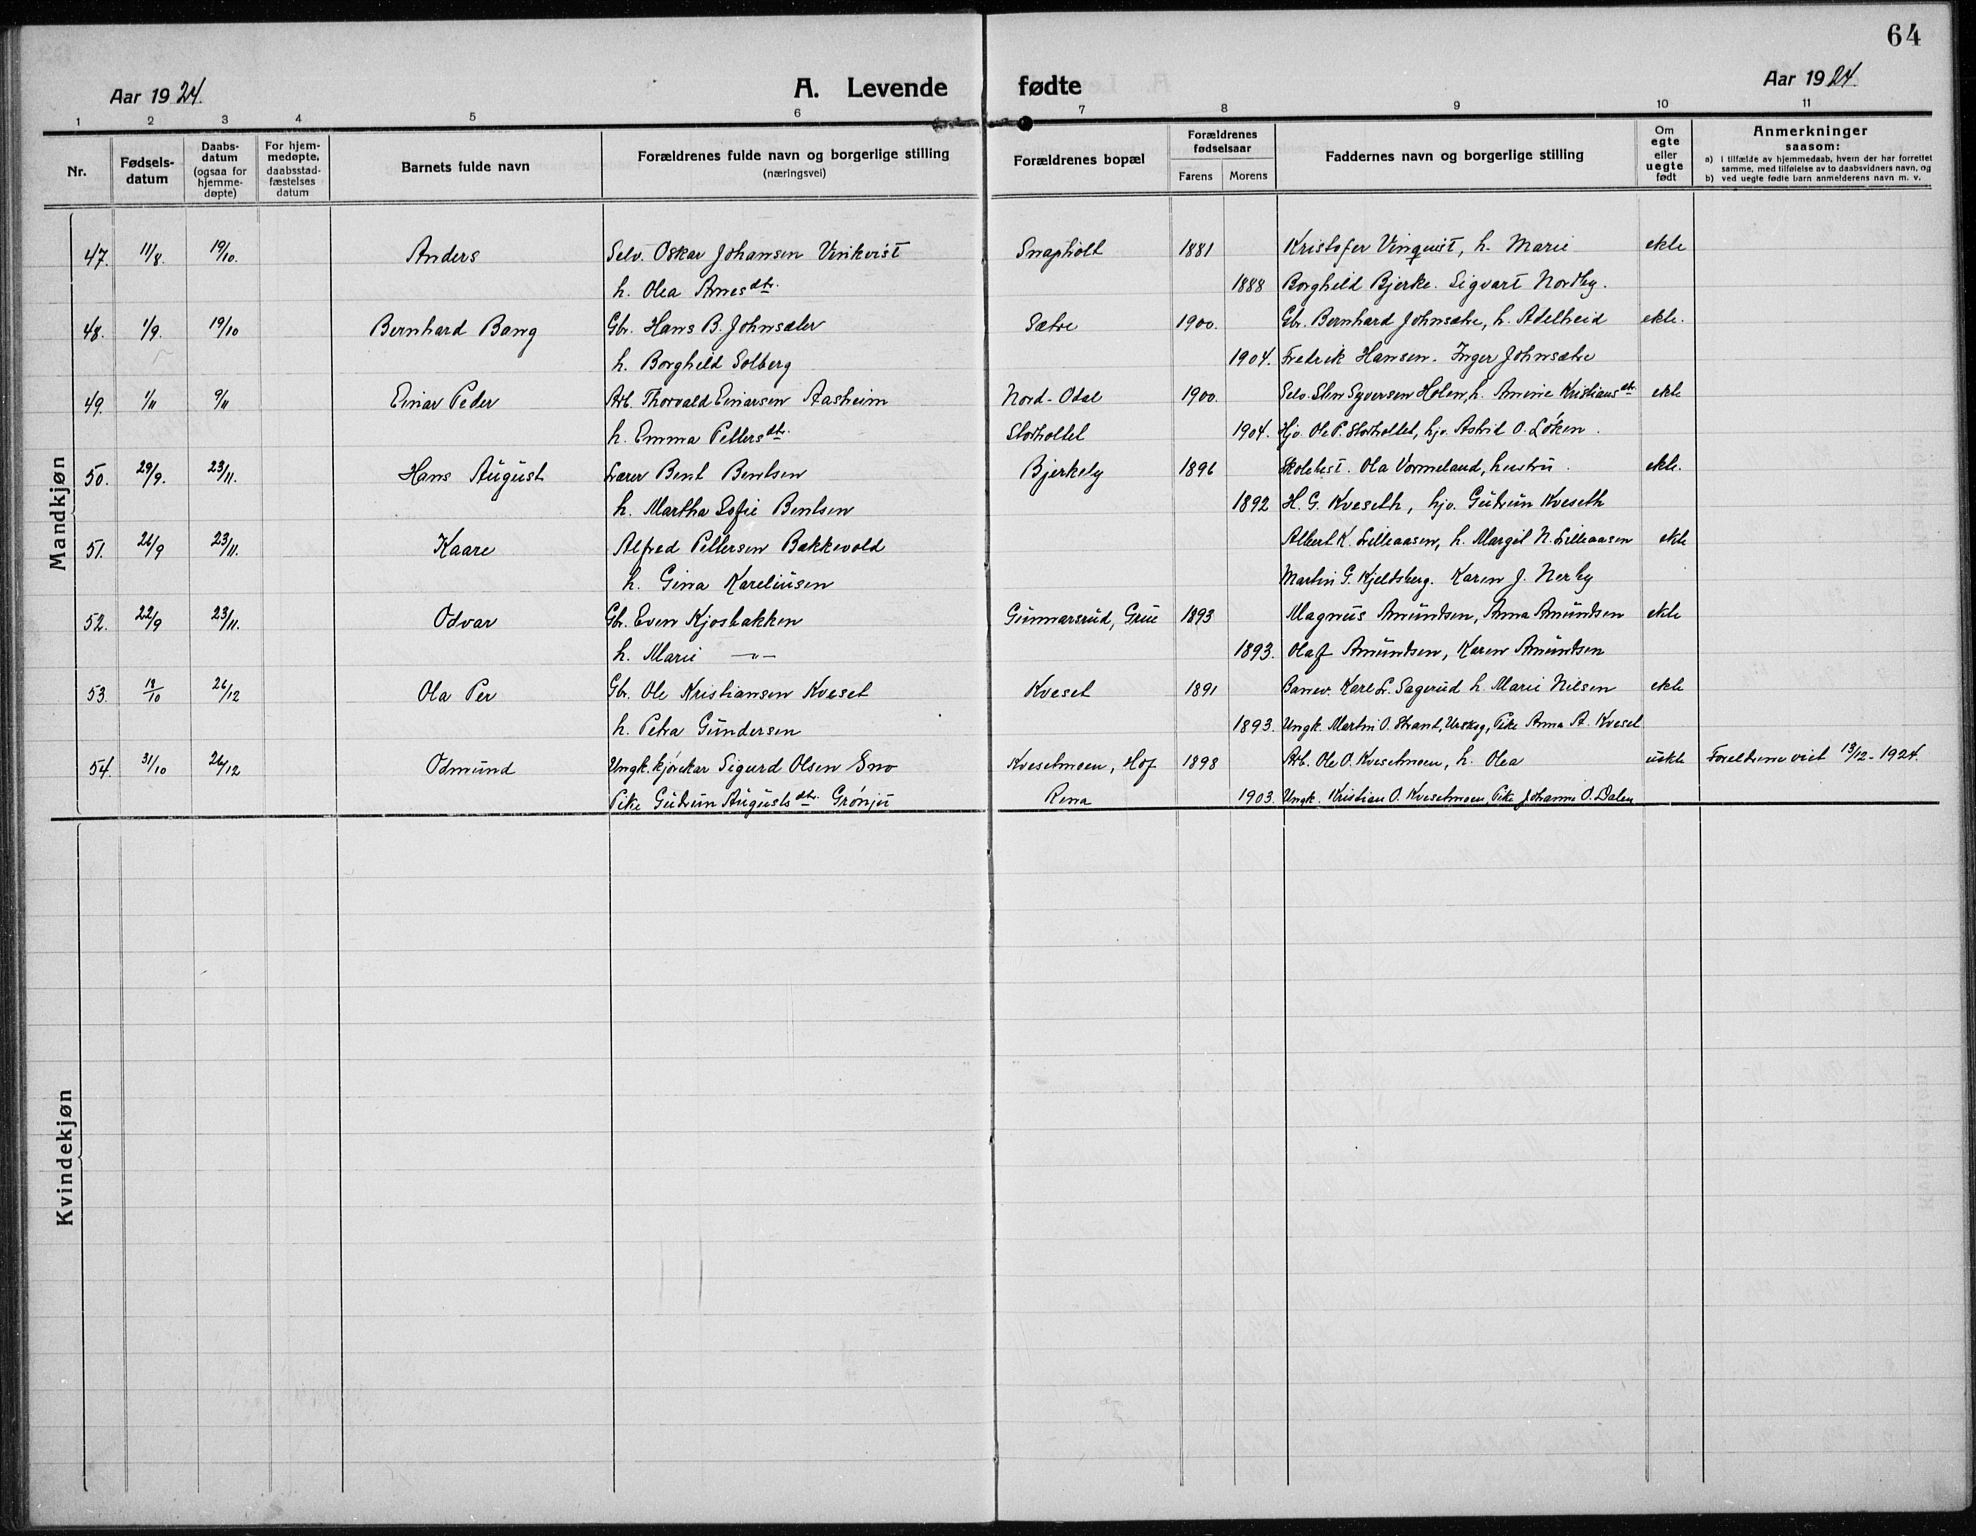 64
Aar 1924.
A. Levende fødte
Aar 1924.
1 2 3 4 5 6 7 8 9 10 11
Nr.
Fødsels-
datum
Daabs-
datum
(ogsaa for
hjemme-
døpte)
For hjem-
medøpte,
daabsstad-
fæstelses
datum
Barnets fulde navn
Forældrenes fulde navn og borgerlige stilling
(næringsvei)
Forældrenes bopæl
Forældrenes
fødselsaar
Farens Morens
Faddernes navn og borgerlige stilling
Om
egte
eller
uegte
født
Anmerkninger
saasom:
a) i tilfælde av hjemmedaab, hvem der har forrettet
samme, med tilføielse av to daabsvidners navn, og
b) ved uegte fødte barn anmelderens navn m. v.
Mandkjøn
47. 11/8. 19/10. Anders Selv. Oskar Johansen Vinkvist Snapholt 1881 Kristofer Vinquist, h. Marie ekte
h. Olea Arnesdtr. 1888 Borghild Bjerke. Sigvart Nordby.
48. 1/9. 19/10 Bernhard Bang Gbr. Hans B. Johnsæter Sætre 1900. Gbr. Bernhard Johnsætre, h. Adelheid ekte.
h. Borghild Solberg 1904. Fredrik Hansen. Inger Johnsætre
49. 1/11 9/11 Einar Peder Arb. Thorvald Einarsen Aasheim Nord-Odal 1900. Selv. Sten Syversen Holen, h. Amine Kristiansdtr. ekte
h. Emma Pettersdtr. Storholtet 1904. Hjo. Ole P. Storholtet, hjv. Astrid O. Löken.
50. 29/9. 23/11. Hans August Lærer Bent Bentsen Bjerkely 1896 Skolebest. Ola Vormeland, hustru. ekte.
h. Martha Sofie Bentsen 1892 H. G. Kveseth, hjv. Gudrun Kveseth
51. 26/9 23/11. Kaare Alfred Pettersen Bakkevold Albert K. Lilleaasen, h. Margit N. Lilleaasen ekte
h. Gina Kareliusen Martin G. Kjeldsberg. Karen J. Nerby
52. 22/9 23/11. Odvar Gbr. Even Kjosbakken Gunnarsrud, Grue 1893 Magnus Amundsen, Anna Amundsen ekte
h. Marie —"— 1893. Olaf Amundsen, Karen Amundsen
53. 18/10 26/12 Ola Per Gbr. Ole Kristiansen Kveset Kveset 1891 Banev. Karl L. Sagerud h. Marie Nilsen ekte
h. Petra Gundersen 1893. Ungk. Martin O. Strand, Urskog, Pike Anna A. Kveset
54. 31/10 26/12 Odmund Ungk. kjörekar Sigurd Olsen Sno Kvesetmoen, Hof 1898 Arb. Ole O. Kvesetmoen, h. Olea uekte Foreldrene viet 13/12-1924.
Pike Gudrun Augustsdtr. Grønju Rena 1903. Ungk. Kristian O. Kvesetmoen, Pike Johanne O. Dalen
Kvindekjøn